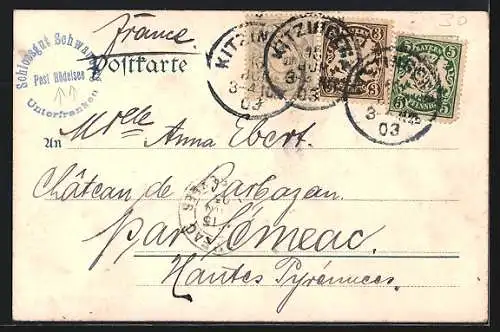 France.
30
Postkarte
Schlossgut Schwan
Post Rödelsee
Unterfranken
KITZIN
KITZINGEN
3-4
03
3
BAYERN
5
PFENNIG
03
An
Mlle Anna Ebert.
Château de Barbazan.
par Sémeac.
Hautes Pyrénnees.